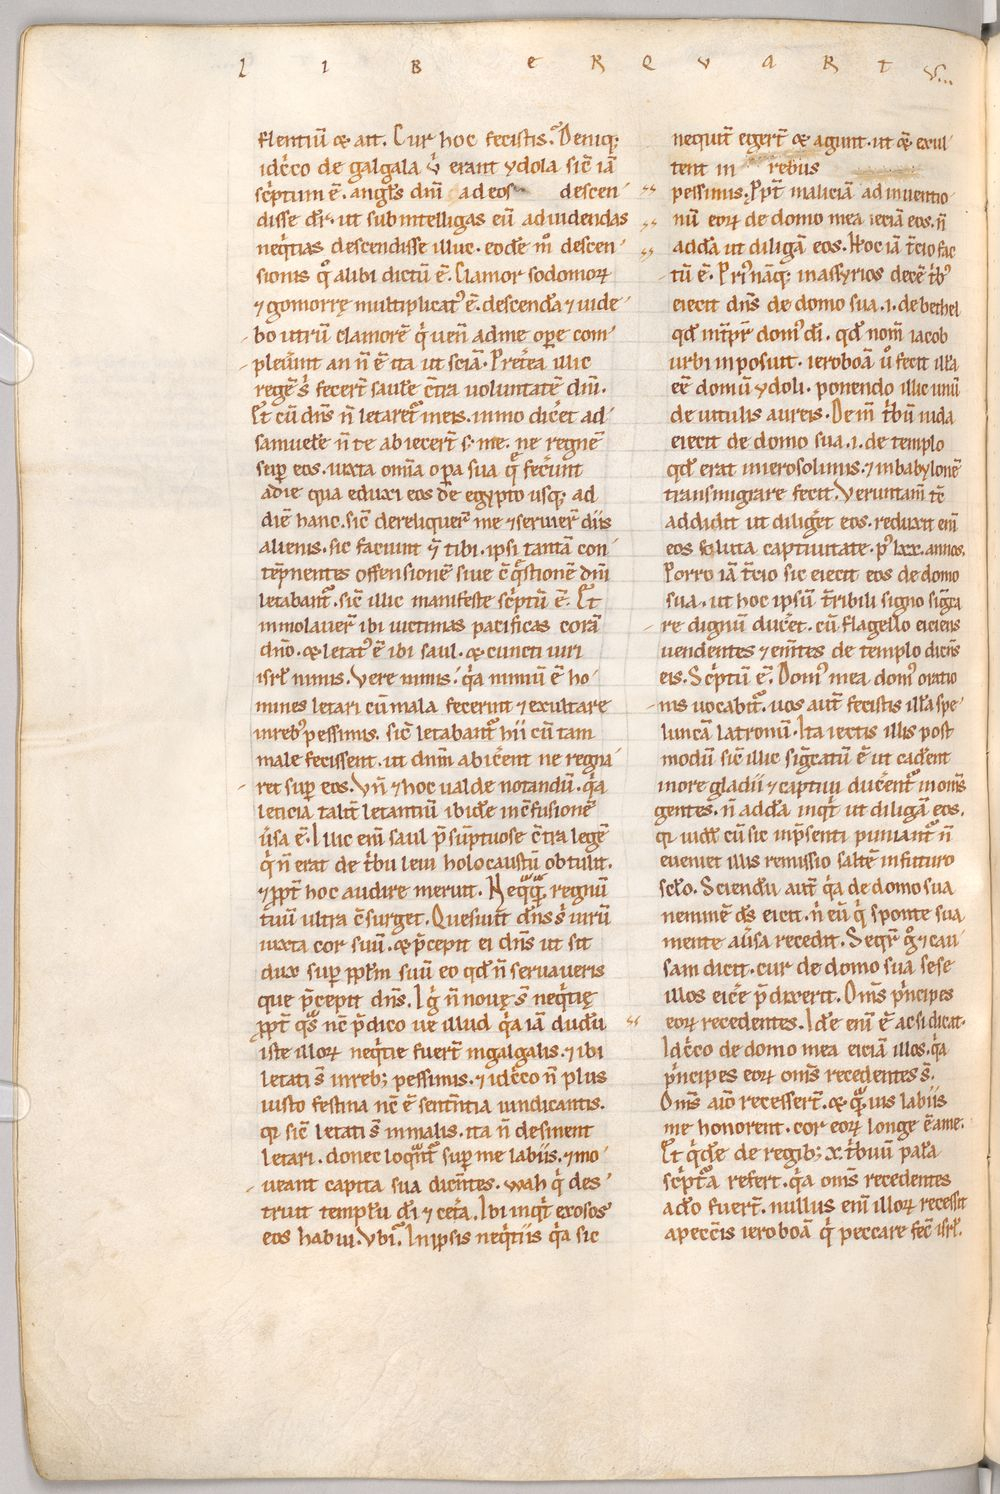 LIBER QUARTU...
flentiū & ait. Cur hoc fecistis? Deniq;
idc̄co de galgala ů erant ydola sic̄ iā
sc̄ptum ē. angl̄s dnī ad eos descen-
disse dr̄. ut subintelligas eū ad uidendas
neq̇tias descendisse illuc. eodē m̊ descen-
sionis q̊ alibi dictū ē. Clamor sodomoꝝ
⁊ gomorrę multiplicatꝰ ē. descendā ⁊ uide-
bo utrū clamorē q̇ uen̄ ad me oꝑe com-
pleuer̄int an n̄ ē ita ut sciā. Pret̄ea illic
regē s̄ fecer̄t saulē c̄tra uoluntatē dnī.
Et cū dn̄s n̄ letaret̄ in eis. immo dic̄et ad
samuelē n̄ te abiecer̄t s; me. ne regnē
sup̄ eos. iuxta om̄ia oꝑa sua q̄ fecer̄unt
a die qua eduxi eos de egypto usq; ad
diē hanc. sic̄ dereliquer̄ me ⁊ seruier̄ diis
alienis. sic faciunt ⁊ tibi. ipsi tantā con-
tēpnentes offensionē siue c̄q̄stionē dnī
letabant̄. sic̄ illic manifeste sc̄ptū ē. Et
immolauer̄ ibi uictimas pacificas corā
dn̄o. & letatꝰ ē ibi saul. & cuncti uiri
isrl̄ nimis. Vere nimis. q̇a nimiū ē ho-
mines letari cū mala fecerint ⁊ exultare
in rebꝰ pessimis. sic̄ letabant̄ hii cū tam
male fecissent. ut dnm̄ abic̄ent ne regna-
ret sup̄ eos. Vn̄ ⁊ hoc ualde notandū. q̇a
leticia taliū letantiū ibidē in c̄fusionē
ůsa ē. Illuc enī saul p̄sūptuose c̄tra legē
q̇ n̄ erat de tb̄u leui holocaustū obtulit.
⁊ ꝓpt̄ hoc audire meruit. Neq̄q̄. regnū
tuū ultra c̄surget. Quesiuit dn̄s s̄ uirū
iuxta cor suū. & p̄cepit ei dn̄s ut sit
dux sup̄ ppl̄m suū eo qd̄ n̄ seruaueris
que p̄cepit dn̄s. Ig̊ n̄ nouę s̄ neq̇tię
ꝓpt̄ q̄s nc̄ p̄dico ue illud q̇a iā dudū
iste illoꝝ neq̇tie fuer̄t in galgalis. ⁊ ibi
letati s̄ in reb; pessimis. ⁊ idc̄co n̄ plus
iusto festina nc̄ ē sentn̄tia uindicantis.
qꝛ sic̄ letati s̄ in malis. ita n̄ desinent
letari. donec loquant̄ sup̄ me labiis. ⁊ mo-
ueant capita sua dicn̄tes. wah q̇ des-
truit templū dī ⁊ cet̄a. Ibi inq̇t exosos
eos habui. Vbi? In ipsis neq̇tiis q̇a sic
nequit̄ eger̄t & agunt. ut & exul-
tent in rebus
pessimis. Ꝓpt̄ maliciā adinuentio-
nū eoꝝ de domo mea eiciā eos. n̄
addā ut diligā eos. Hoc iā t̄cio fac-
tū ē. Primꝰ nāq; in assyrios decē tb̄ꝰ
eiecit dn̄s de domo sua .i. de bethel
qd̄ int̄pr̄ domꝰ dī. qd̄ nom̄ iacob
urbi imposuit. ieroboā ů fecit illā
eē domū ydoli. ponendo illic unū
de uitulis aureis. Dein̄ tb̄ū iuda
eiecit de domo sua .i. de templo
qd̄ erat in ierosolimis. ⁊ in babylonē
transmigrare fecit. Veruntam̄ tc̄
addidit ut diliḡet eos. reduxit enī
eos soluta captiuitate. p̊ lxx. annos.
Porro iā t̄cio sic eiecit eos de domo
sua. ut hoc ipsū t̄ribili signo siḡca-
re dignū duc̄et. cū flagello eiciens
uendentes ⁊ em̄tes de templo dicn̄s
eis. Sc̄ptū ē. Domꝰ mea domꝰ oratio-
nis uocabit̄. uos aut̄ fecistis illā spe-
luncā latronū. Ita iectis illis post
modū sic̄ illic siḡcatū ē ut cad̄ent
in ore gladii ⁊ captiui duc̄ent̄ in om̄s
gentes. n̄ addā inq̇t ut diligā eos.
qꝛ uidꝫ cū sic in p̄senti puniant̄ n̄
eueniet illis remissio saltē in futuro
sclo̅. Sciendū aut̄ q̇a de domo sua
neminē ds̄ eicit. n̄ eū q̇ sponte sua
mente aůsa recedit. Seqr̄ g̊ ⁊ cau-
sam dicit. cur de domo sua sese
illos eic̄e p̄dixerit. Om̄s ṗncipes
eoꝝ recedentes. Idē enī ē ac si dicat.
Idc̄co de domo mea eiciā illos. q̇a
ṗncipes eoꝝ om̄s recedentes s̄.
Om̄s a dō recesser̄t. & q̄uis labiis
me honorent. cor eoꝝ longe ē a me.
Et q̇dē de regib; x. tb̄uū palā
sc̄pt̄a refert. q̇a om̄s recedentes
a dō fuer̄t. nullus enī illoꝝ recessit
a pecc̄is ieroboā q̇ peccare fec̄ isrl̄.